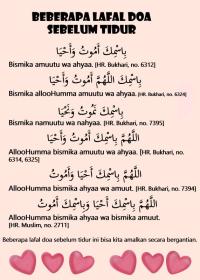 BEBERAPA LAFAL DOA
SEBELUM TIDUR
بِاسْمِكَ أَمُوتُ وَأَحْيَا
Bismika amuutu wa ahyaa. [HR. Bukhari, no. 6312]
بِاسْمِكَ اللَّهُمَّ أَمُوتُ وَأَحْيَا
Bismika allooHumma amuutu wa ahyaa. [HR. Bukhari, no. 6324]
بِاسْمِكَ نَمُوتُ وَنَحْيَا
Bismika namuutu wa nahyaa. [HR. Bukhari, no. 7395]
اللَّهُمَّ بِاسْمِكَ أَمُوتُ وَأَحْيَا
AllooHumma bismika amuutu wa ahyaa. [HR. Bukhari, no.
6314, 6325]
اللَّهُمَّ بِاسْمِكَ أَحْيَا وَأَمُوتُ
AllooHumma bismika ahyaa wa amuut. [HR. Bukhari, no. 7394]
اللَّهُمَّ بِاسْمِكَ أَحْيَا وَبِاسْمِكَ أَمُوتُ
AllooHumma bismika ahyaa wa bismika amuut.
[HR. Muslim, no. 2711]
Beberapa lafal doa sebelum tidur ini bisa kita amalkan secara bergantian.